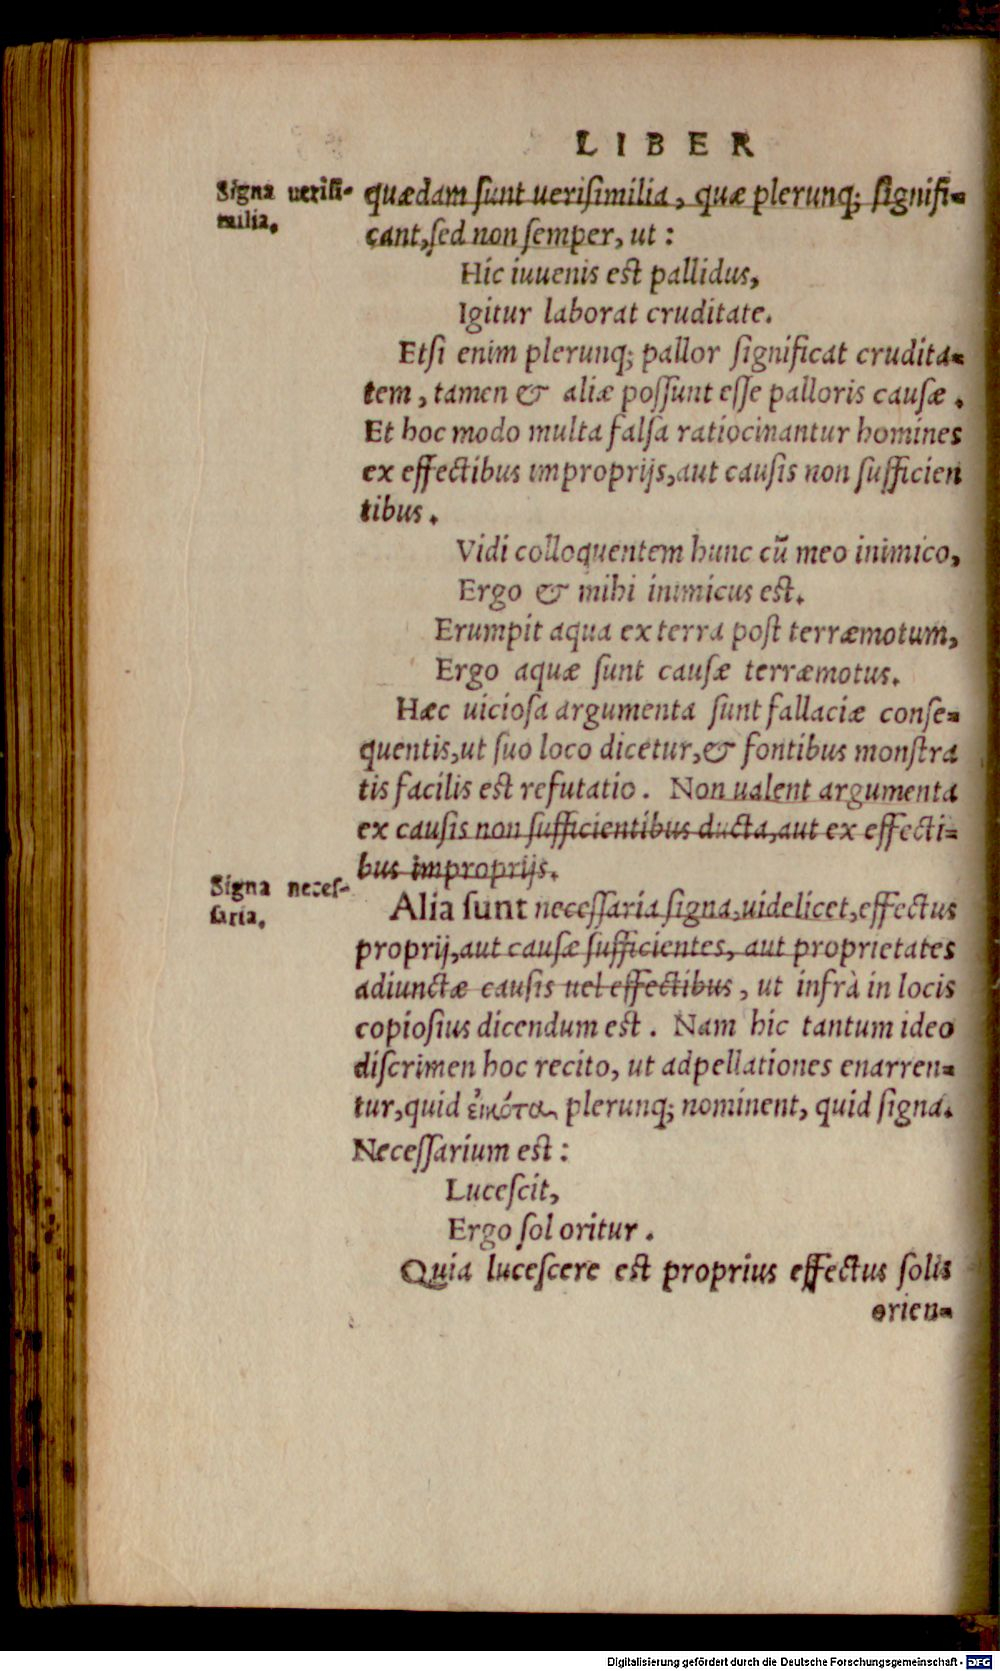 LIBER
Signa uerisi-
milia.
quædam sunt uerisimilia, quæ plerunq; signifi-
cant, sed non semper, ut:
Hic iuuenis est pallidus,
Igitur laborat cruditate.
Etsi enim plerunq; pallor significat crudita-
tem, tamen & aliæ possunt esse palloris causæ.
Et hoc modo multa falsa ratiocinantur homines
ex effectibus improprijs, aut causis non sufficien
tibus.
Vidi colloquentem hunc cũ meo inimico,
Ergo & mihi inimicus est.
Erumpit aqua ex terra post terræmotum,
Ergo aquæ sunt causæ terræmotus.
Hæc uiciosa argumenta sunt fallaciæ conse-
quentis, ut suo loco dicetur, & fontibus monstra
tis facilis est refutatio. Non ualent argumenta
ex causis non sufficientibus ducta, aut ex effecti-
bus improprijs.
Signa neces-
saria.
Alia sunt necessaria signa, uidelicet, effectus
proprij, aut causæ sufficientes, aut proprietates
adiunctæ causis uel effectibus, ut infrà in locis
copiosius dicendum est. Nam hic tantum ideo
discrimen hoc recito, ut adpellationes enarren-
tur, quid ἐικότα plerunq; nominent, quid signa.
Necessarium est:
Lucescit,
Ergo sol oritur.
Quia lucescere est proprius effectus solis
orien-
Digitalisierung gefördert durch die Deutsche Forschungsgemeinschaft - DFG